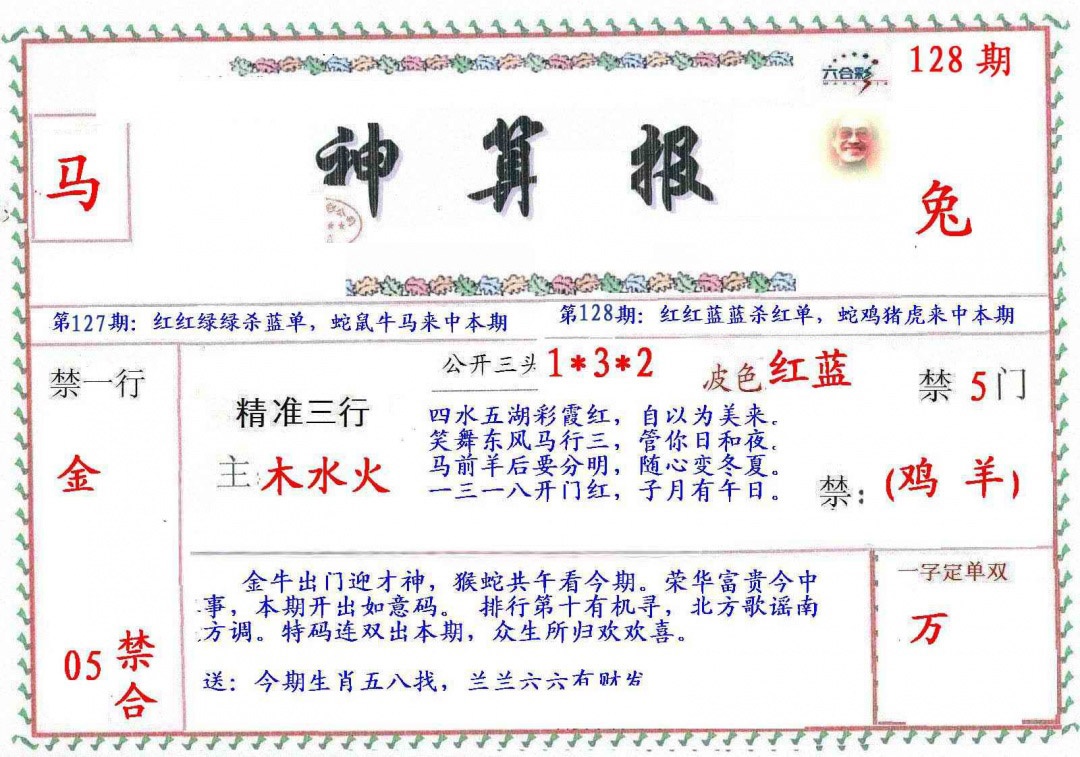 六合彩
128期
马
神算报
兔
第127期：红红绿绿杀蓝单，蛇鼠牛马来中本期
第128期：红红蓝蓝杀红单，蛇鸡猪虎来中本期
禁一行
金
05
禁合
精准三行
主:木水火
公开三头 1*3*2
波色 红蓝
禁5门
四水五湖彩霞红，自以为美来。
笑舞东风马行三，管你日和夜。
马前羊后要分明，随心变冬夏。
一三一八开门红，子月有午日。
禁：(鸡 羊)
金牛出门迎才神，猴蛇共午看今期。荣华富贵今中
事，本期开出如意码。排行第十有机寻，北方歌谣南
方调。特码连双出本期，众生所归欢欢喜。
送：今期生肖五八找，兰兰六六有财发
一字定单双
万